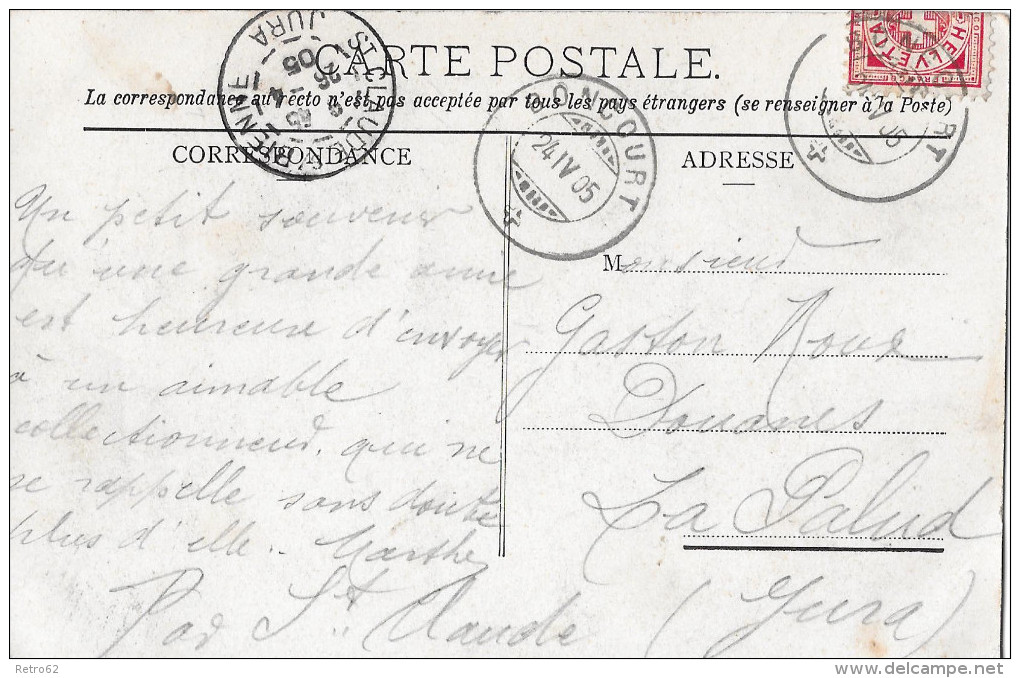 CARTE POSTALE.
La correspondance au recto n'est pas acceptée par tous les pays étrangers (se renseigner à la Poste)
CORRESPONDANCE
ADRESSE
Un petit souvenir
qu'une grande amie
est heureuse d'envoyer
à un aimable
collectionneur, qui ne
se rappelle sans doute
plus d'elle.. Marthe
Par St Claude
Monsieur
Gaston Roux
Douanes
La Palud
(Jura)
BONCOURT
24 IV 05
ST CLAUDE S. BIENNE
JURA
05
HELVETIA
FRANCO
RT
V 05
Retro62
delcampe.net